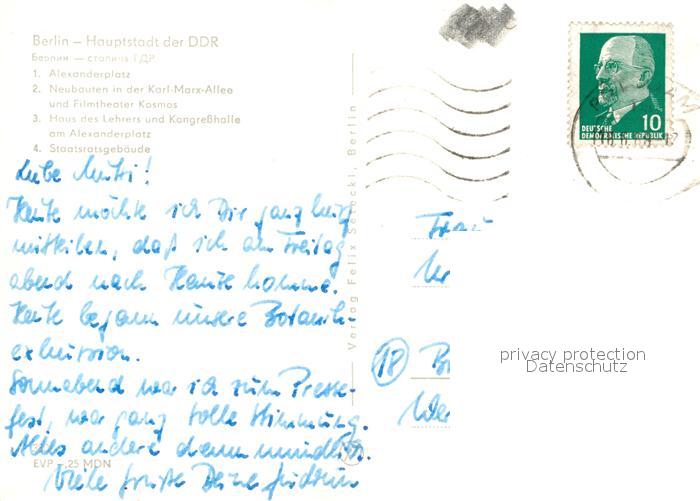 Berlin – Hauptstadt der DDR
Берлин — столица ГДР
1. Alexanderplatz
2. Neubauten in der Karl-Marx-Allee
und Filmtheater Kosmos
3. Haus des Lehrers und Kongreßhalle
am Alexanderplatz
4. Staatsratsgebäude
Liebe Mutti!
Heute möchte ich Dir ganz kurz
mitteilen, daß ich am Freitag
abend nach Hause komme.
Heute begann unsere Botanik-
exkursion.
Sonnabend war ich zum Presse-
fest, war ganz tolle Stimmung.
Alles andere dann mündlich.
EVP -,25 MDN
Viele Grüße Deine
Verlag Felix Setecki, Berlin
10
DEUTSCHE
DEMOKRATISCHE REPUBLIK
Frau
18
privacy protection
Datenschutz